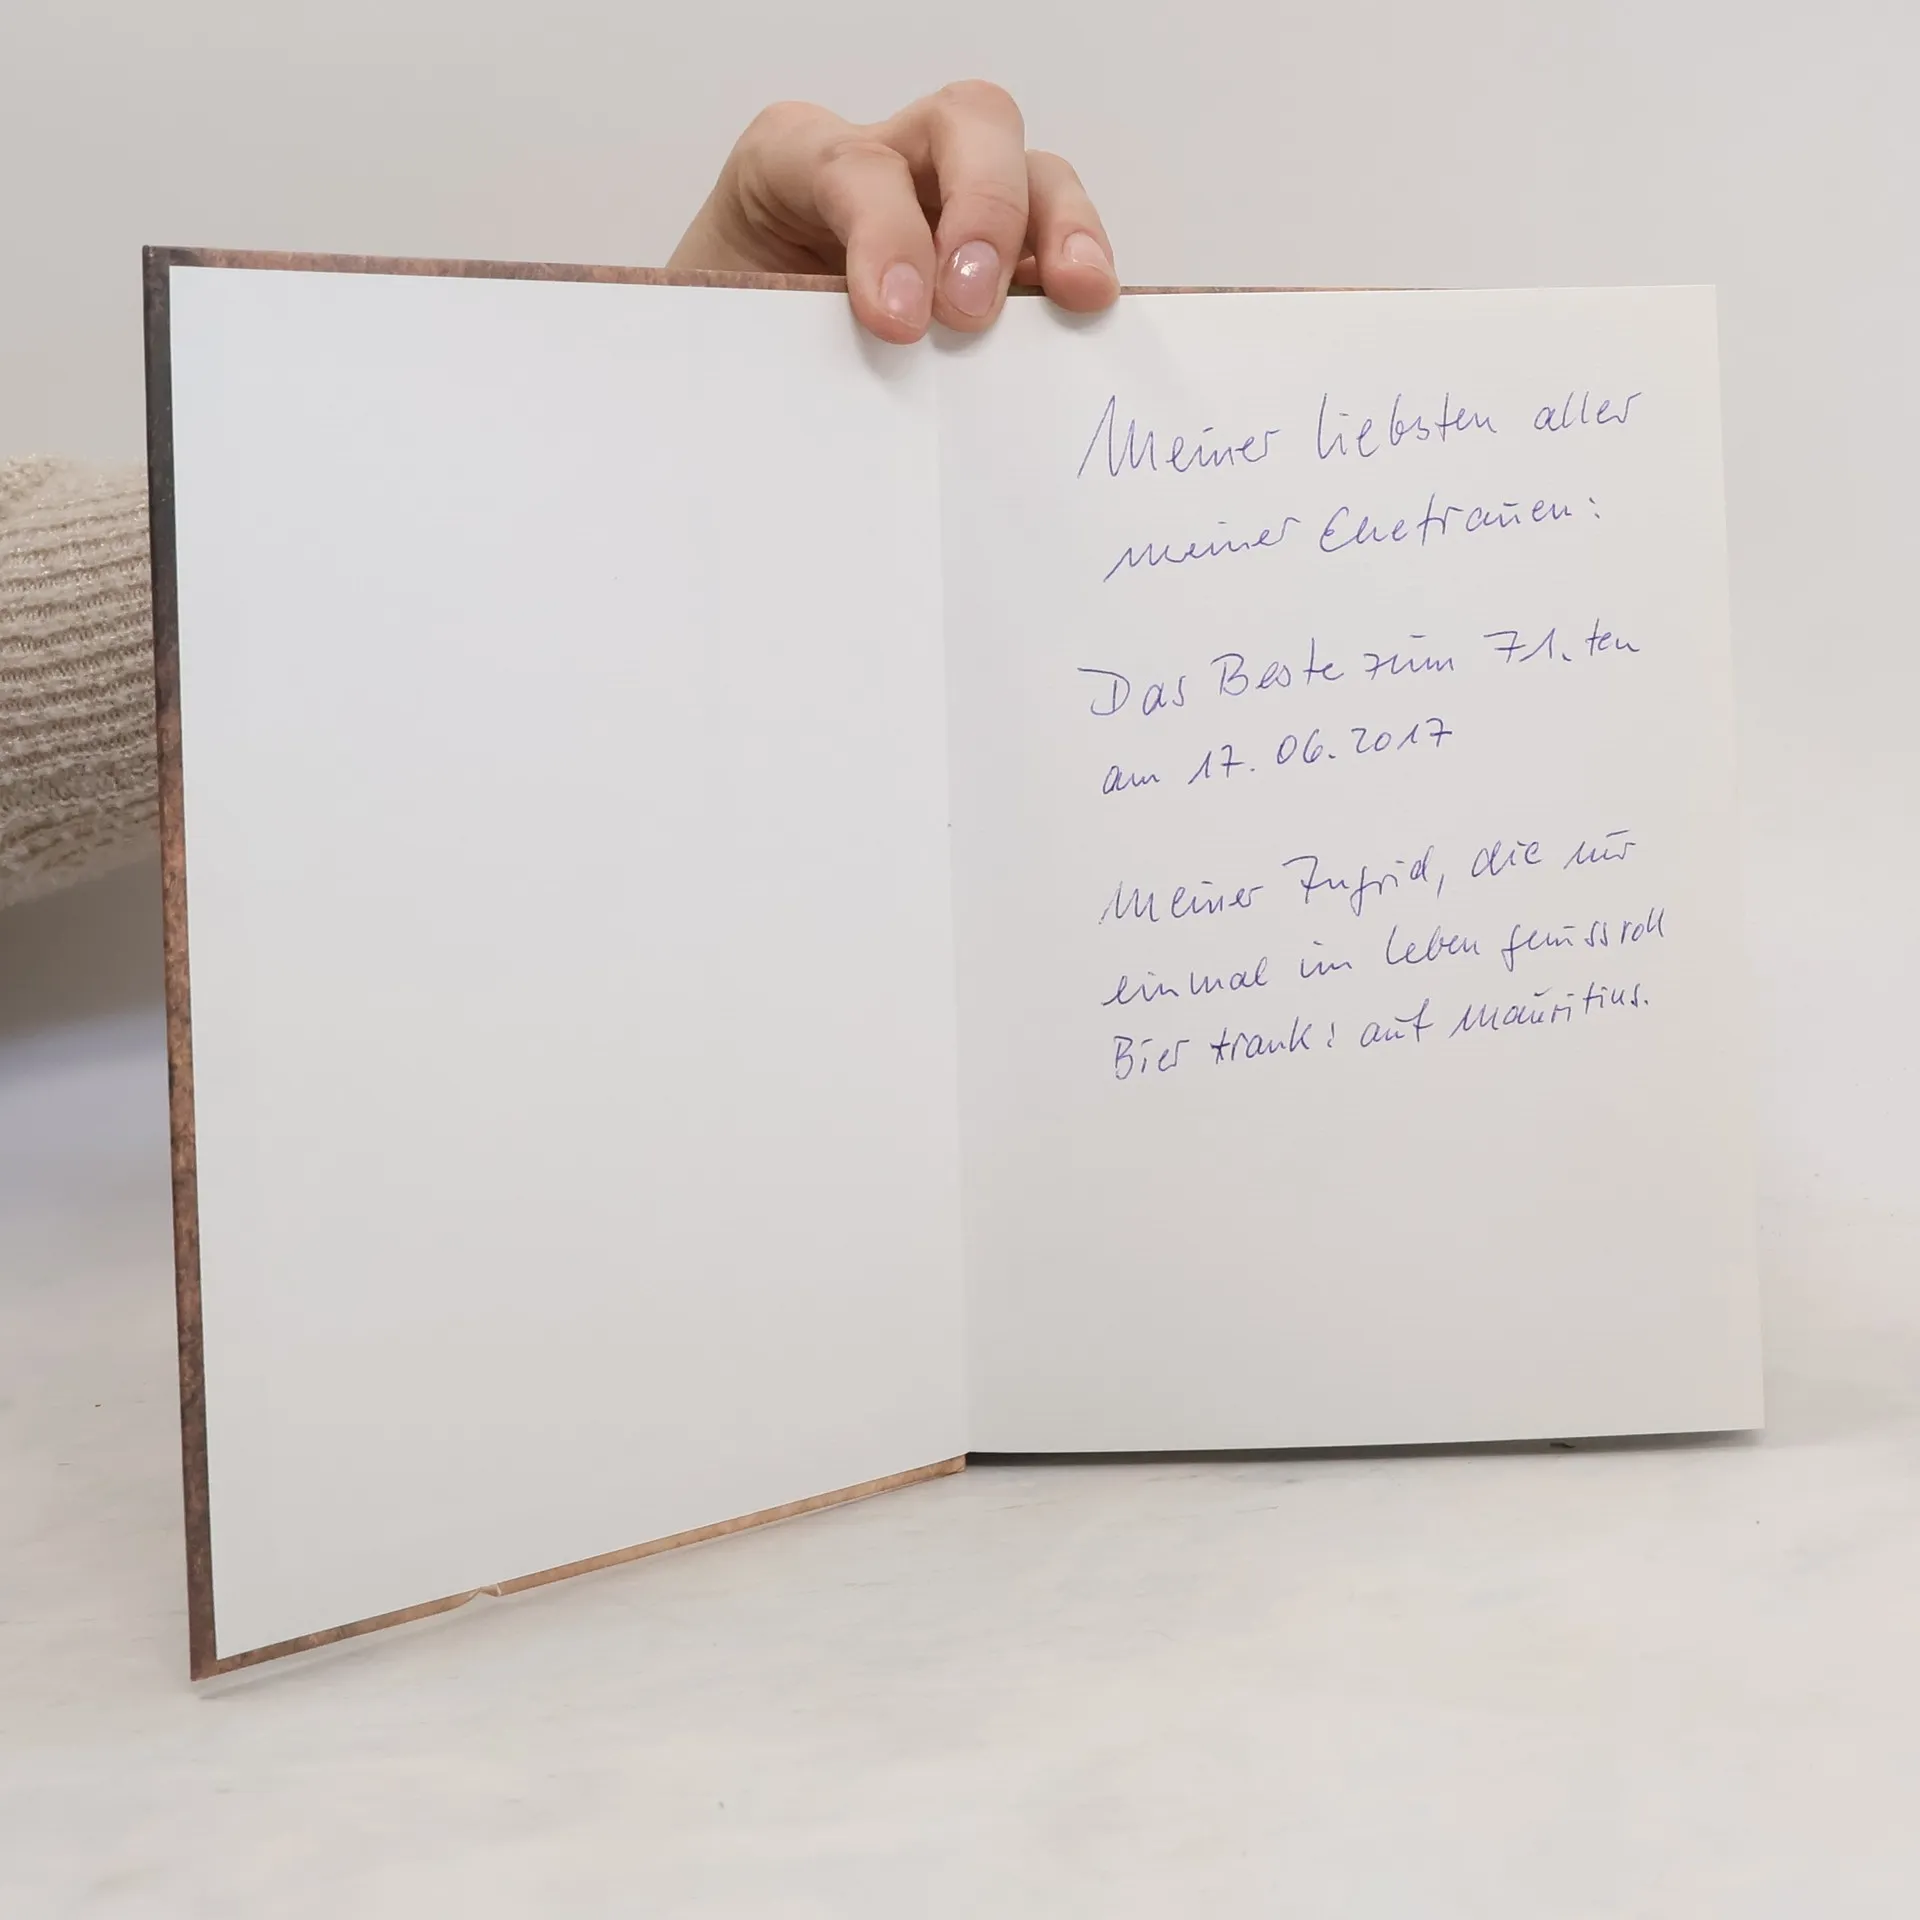 Meiner liebsten aller
meiner Ehefrauen:
Das Beste zum 71.ten
am 17.06.2017
Meiner Ingrid, die nur
einmal im Leben genussvoll
Bier trank: auf Mauritius.